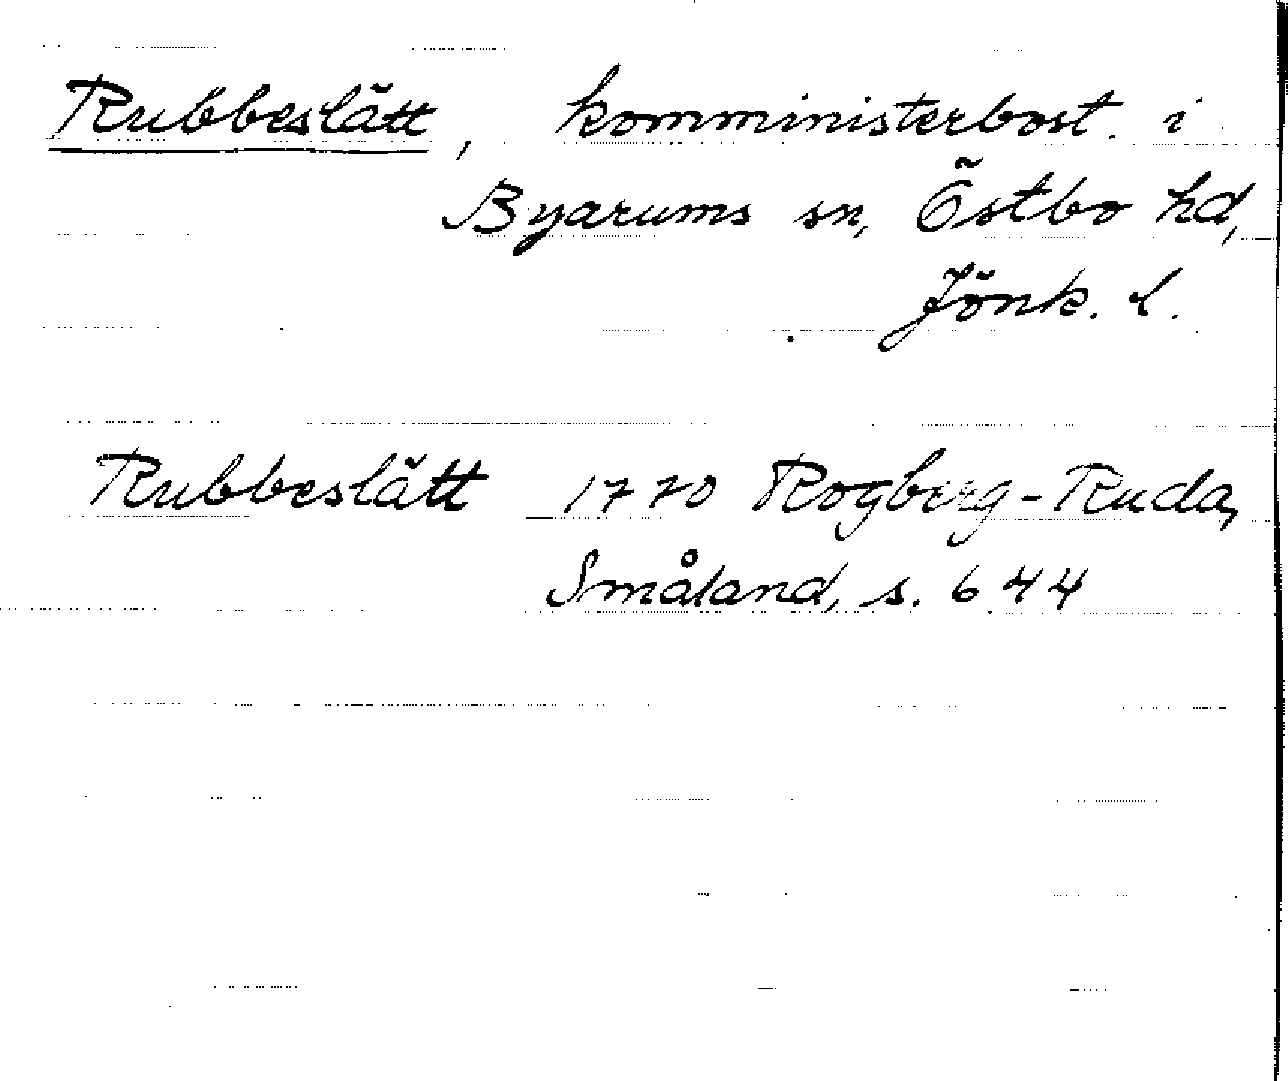 Rubbeslätt, komministerbost. i
Byarums sn, Östbo hd,
Jönk. l.
Rubbeslätt 1770 Rogberg-Ruda,
Småland, s. 644